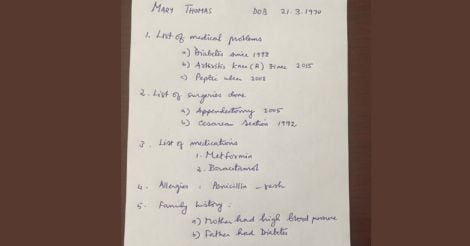 MARY THOMAS DOB 21.3.1970
1. List of medical problems
a) Diabetes since 1998
b) Arthritis knee (R) since 2015
c) Peptic ulcer 2008
2. List of surgeries done
a) Appendectomy 2005
b) Cesarean Section 1992
3. List of medications
1. Metformin
2. Paracetamol
4. Allergies : Penicillin - rash
5. Family history :
a) Mother had high blood pressure
b) Father had Diabetes